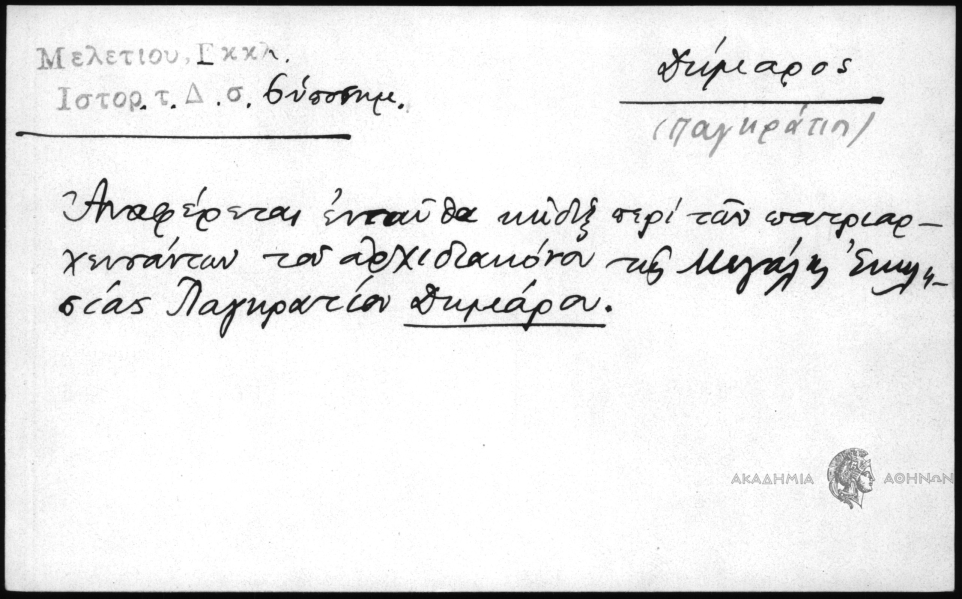 Μελετιου, Εκκλ.
Ιστορ. τ. Δ. σ. 6 ὑποσημ.
Δήμαρος
(Παγκράτιος)
Ἀναφέρεται ἐνταῦθα κῶδιξ περί τῶν πατριαρ-
χευσάντων τοῦ ἀρχιδιακόνου τῆς Μεγάλης Ἐκκλη-
σίας Παγκρατίου Δημάρου.
ΑΚΑΔΗΜΙΑ ΑΘΗΝΩΝ